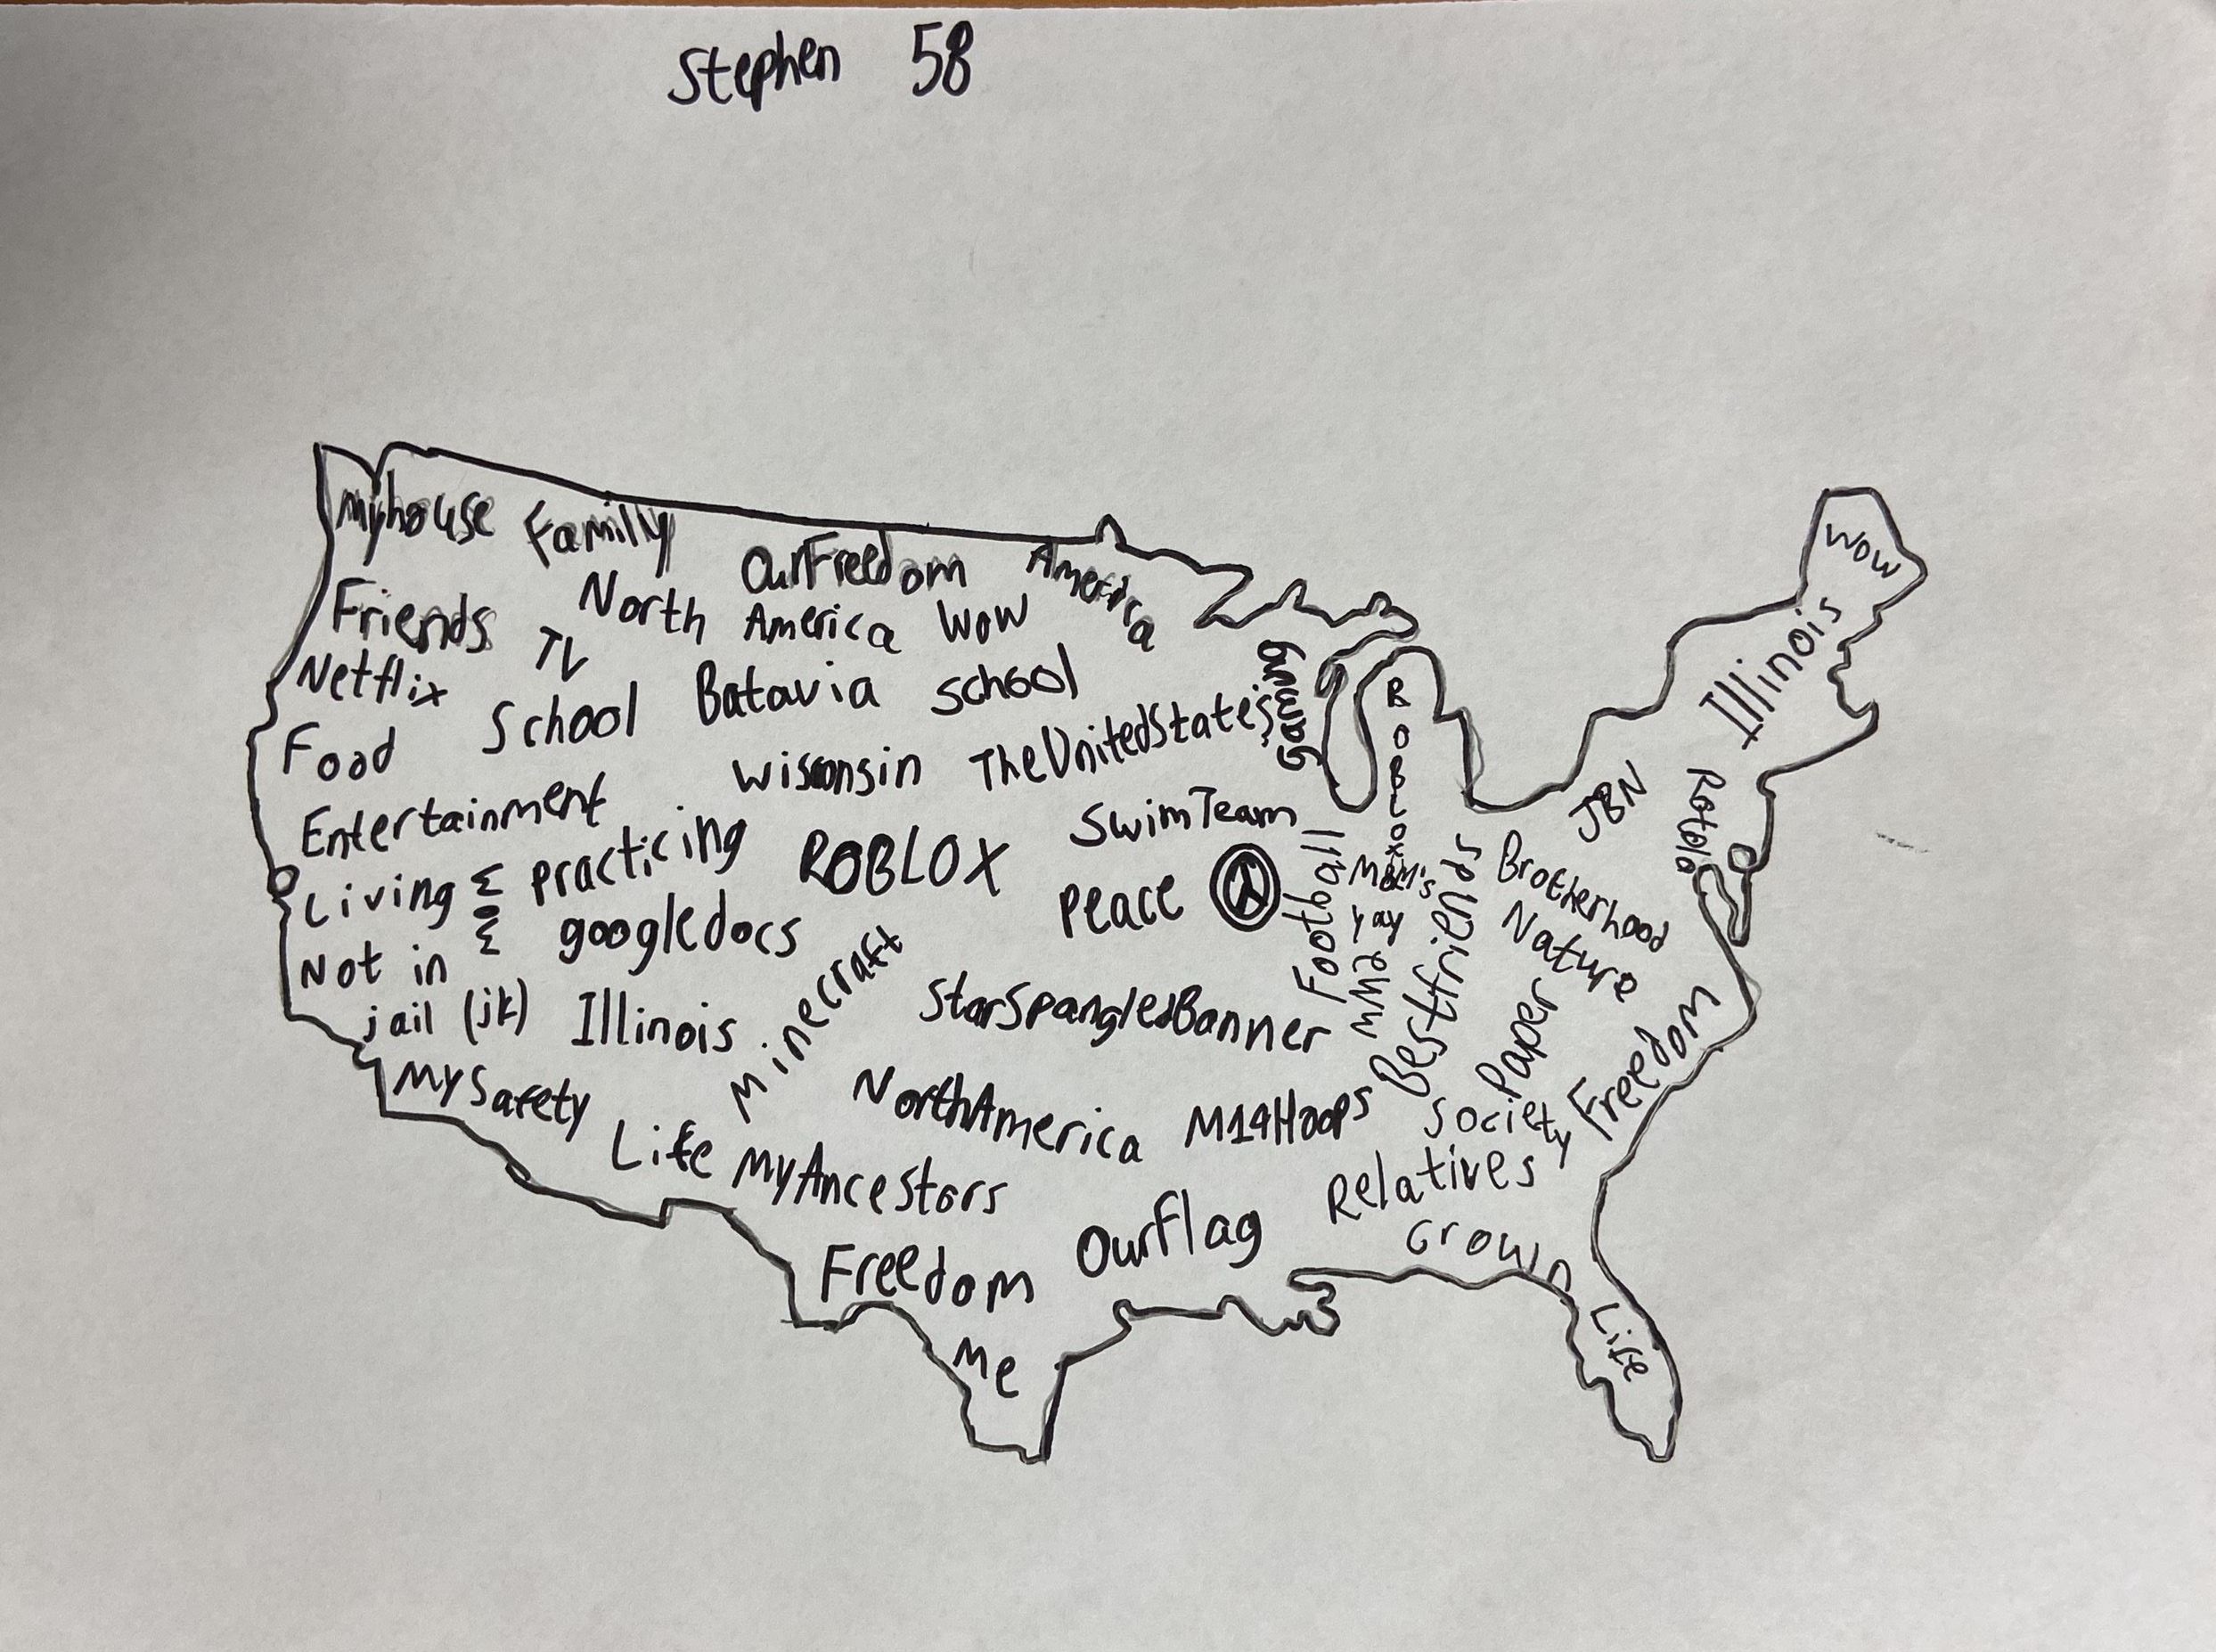 Stephen 58
Myhouse
Familly
OurFreedom
America
Wow
Friends
TV
North America Wow
Netflix
School
Batavia
School
Gaming
Illinois
Food
Wisconsin
TheUnitedStates
ROBLOX
Entertainment
SwimTeam
JBN
Rotolo
Living
practicing
ROBLOX
Peace
Football
M&M's
yay
Bestfriends
Brotherhood
Nature
Not in
jail (jk)
googledocs
Minecraft
Illinois
StarSpangledBanner
Paper
Freedom
MySafety
Life
MyAncestors
NorthAmerica
M14Hoops
Society
Relatives
Crown
Freedom
OurFlag
Me
Life